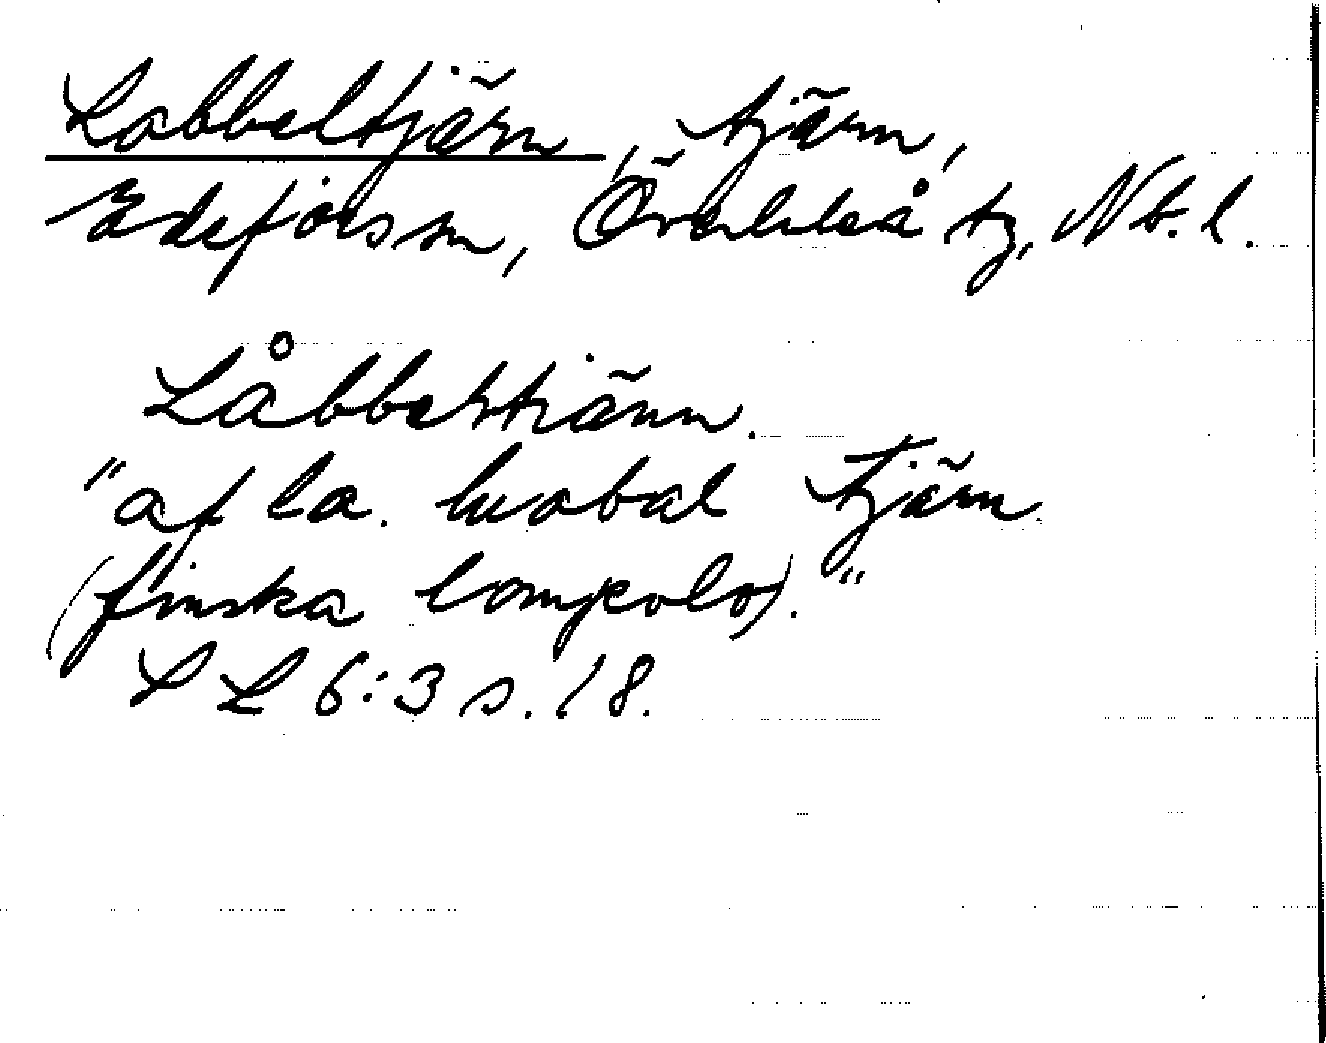 Labbeltjärn, tjärn,
Edefors sn, Överluleå tg, Nb. l.
Låbbeltiänn.
"af la. luobal tjärn
(finska lompolo)."
S L 6:3 s. 18.